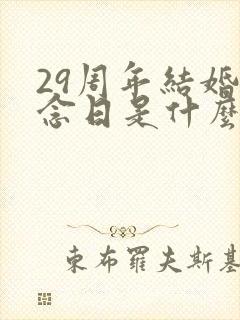 29周年結婚
念日是什麼
東布羅夫斯基